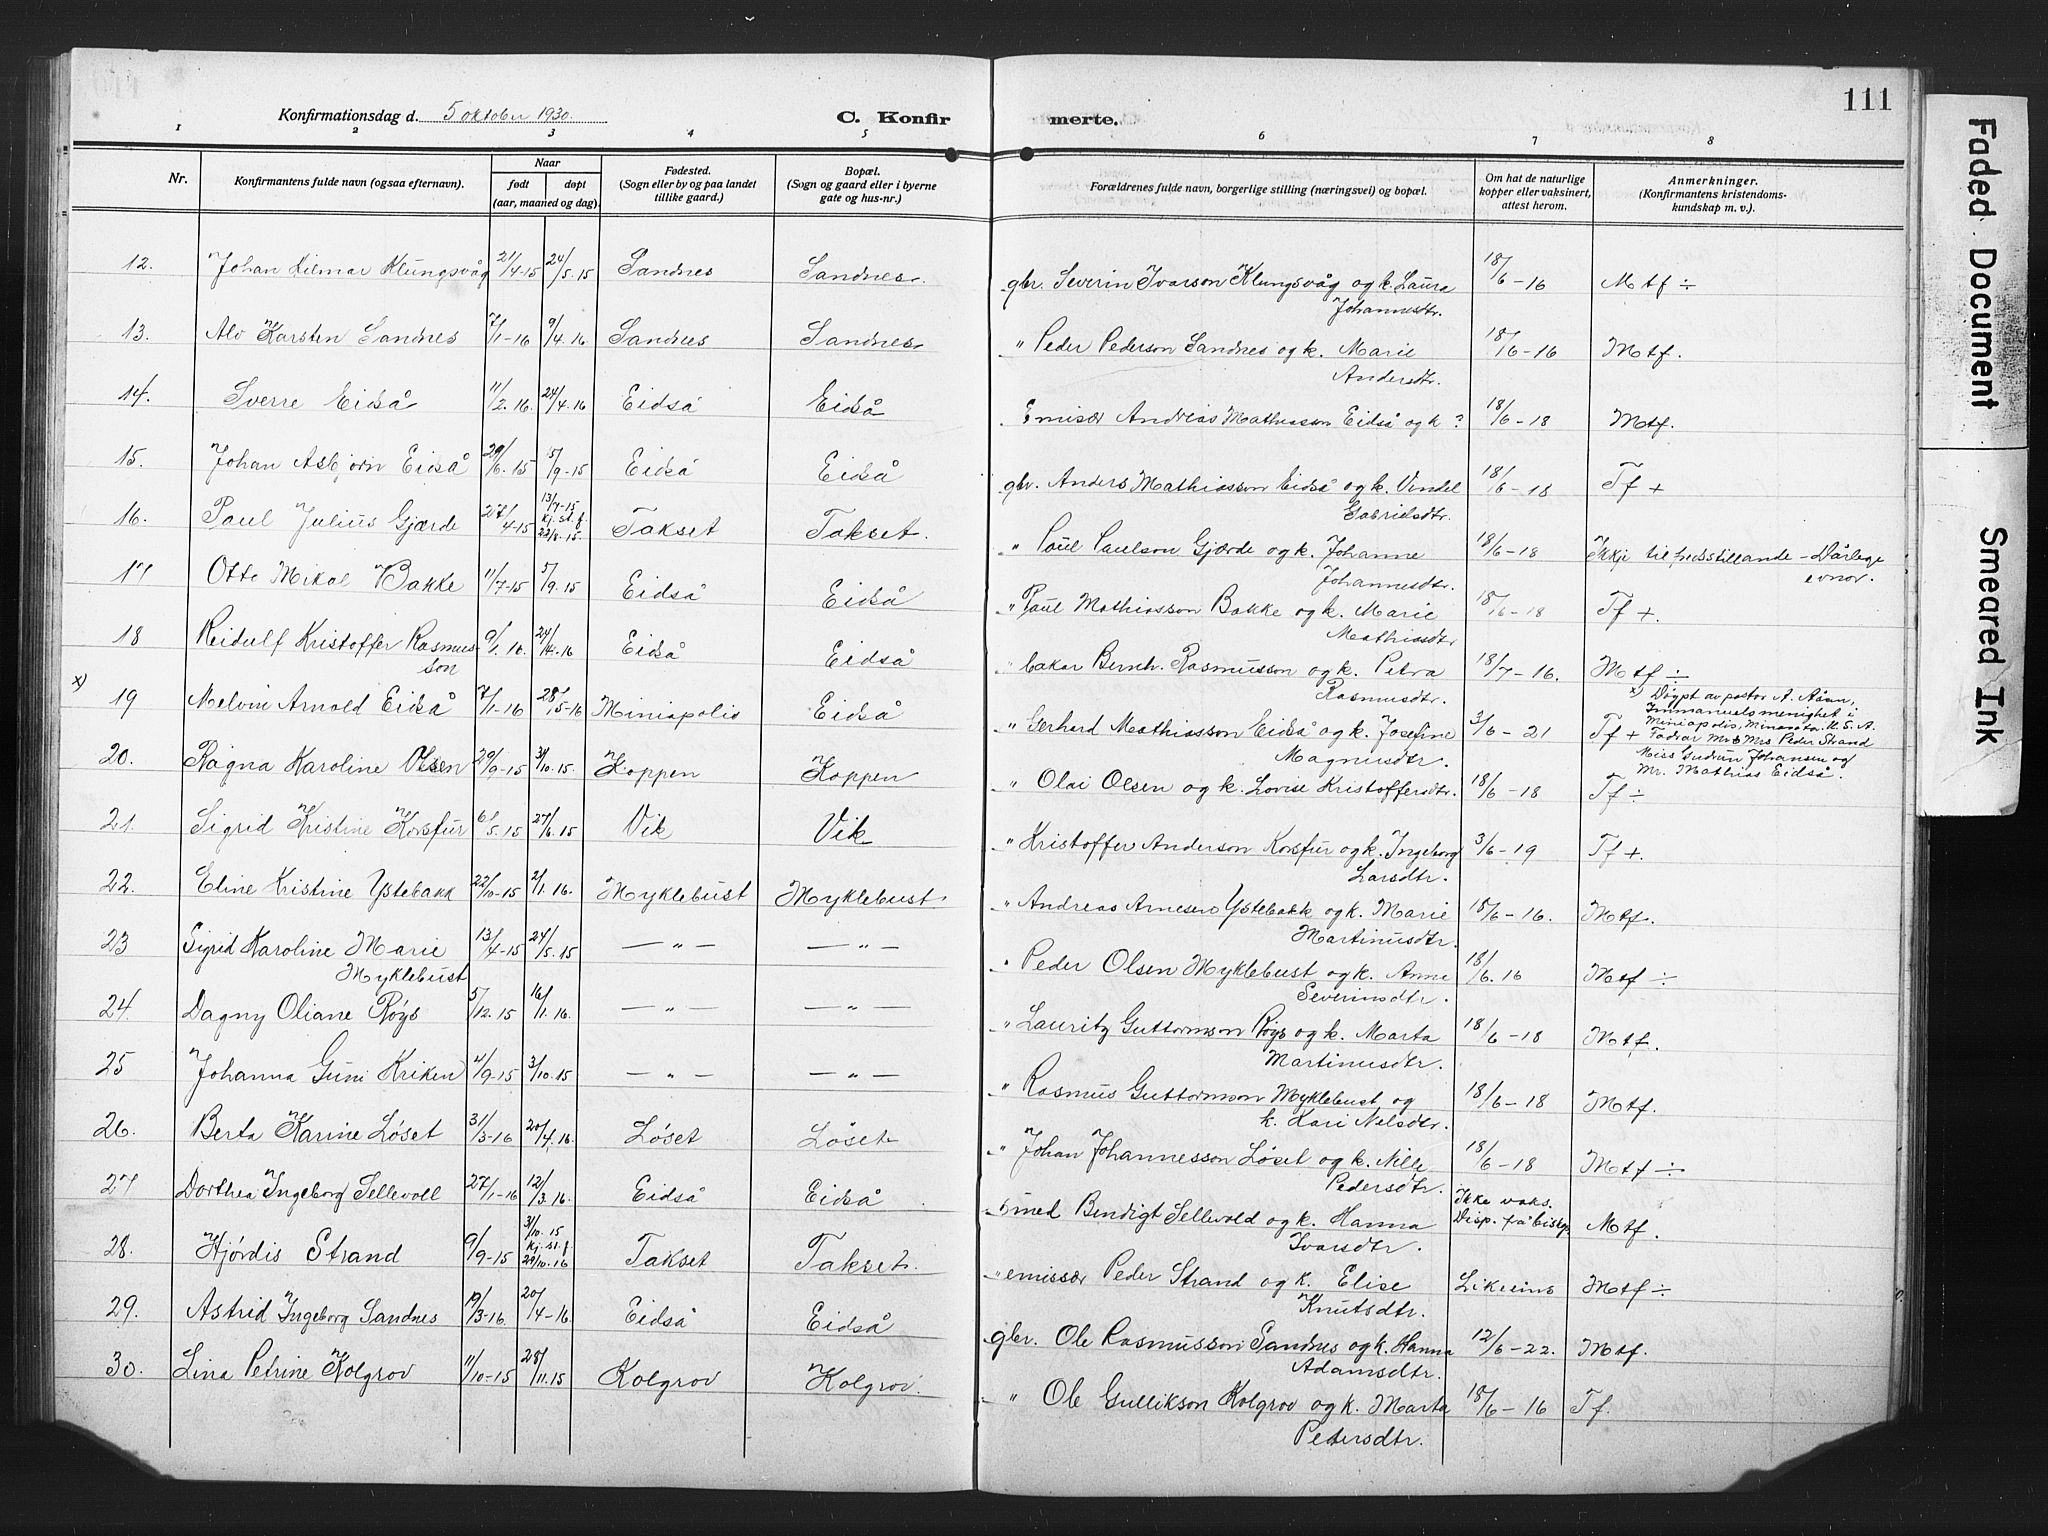 111
Konfirmationsdag d. 5 oktober 1930.
C. Konfirmerte.
1 2 3 4 5 6 7 8
Nr.
Konfirmantens fulde navn (ogsaa efternavn).
Naar
født døpt
(aar, maaned og dag).
Fødested.
(Sogn eller by og paa landet
tillike gaard.)
Bopæl.
(Sogn og gaard eller i byerne
gate og hus-nr.)
Forældrenes fulde navn, borgerlige stilling (næringsvei) og bopæl.
Om hat de naturlige
kopper eller vaksinert,
attest herom.
Anmerkninger.
(Konfirmantens kristendoms-
kundskap m. v.).
12. Johan Hilmar Klungsvåg 21/4-15 24/5.15 Sandnes Sandnes. gbr. Severin Ivarson Klungsvåg og k. Laura 18/6-16 Mtf ÷
Johannesdtr.
13. Alv Karsten Sandnes 7/1-16 9/4.16 Sandnes Sandnes " Peder Pederson Sandnes og k. Marie 18/6-16 Mtf.
Andersdtr.
14. Sverre Eidså 11/2.16. 24/4.16 Eidså Eidså Emisær Andreas Mathiasson Eidså og k ? 18/6-18 Mtf.
15. Johan Asbjørn Eidså 29/6.15 5/9-15 Eidså Eidså gbr. Anders Mathiasson Eidså og k. Vendel 18/6-18 Tf +
Gabrielsdtr.
16. Paul Julius Gjærde 27/4-15 13/7-15 Kj. st. f. 22/8.15 Takset Takset. " Paul Paulson Gjærde og k. Johanne 18/6-18 Ikkje til fredsstillande - Dårlege
Johannesdtr. evnor.
17 Otto Mikal Bakke 11/7-15 5/9.15 Eidså Eidså " Paul Mathiasson Bakke og k. Marie 18/6-18 Tf +.
Mathiasdtr
18 Reidulf Kristoffer Rasmus- 9/1.16. 24/4.16 Eidså Eidså " bakar Bernh. Rasmusson og k. Petra 18/7-16. Mtf ÷
son Rasmusdtr.
x) 19 Melvin Arnold Eidså 7/1-16 28/5-16 Miniapolis Eidså " Gerhard Mathiasson Eidså og k. Josefine 3/6-21 Tf +
Magnusdtr.
x) Døypt av pastor A. Aåsen,
Immanuelsmenighet i
Miniapolis, Minesota. U. S. A.
Fadrar Mr & Mrs Peder Strand
Miss Gudrun Johansen og
Mr. Mathias Eidså.
20. Ragna Karoline Olsen 29/9-15 31/10.15. Hoppen Hoppen " Olai Olsen og k. Lovise Kristoffersdtr. 18/6-18 Tf ÷
21. Sigrid Kristine Korsfur 6/5.15 27/6.15 Vik Vik " Kristoffer Anderson Korsfur og k. Ingeborg 3/6-19 Tf +.
Larsdtr.
22. Eline Kristine Ystebakk 22/10-15 2/1.16. Myklebust Myklebust. " Andreas Arnesen Ystebakk og k. Marie 18/6-16. Mtf.
Martinusdtr.
23 Sigrid Karoline Marie 13/4-15 24/5.15 — " — — " — " Peder Olsen Myklebust og k. Anne 18/6.16 Mtf ÷
Myklebust Severinsdtr.
24. Dagny Oliane Røys 5/12.15 16/1.16. — " — — " — " Lauritz Guttormson Røys og k. Marta 18/6-18 Mtf.
Martinusdtr.
25 Johanna Guni Kriken 4/9-15 3/10.15 — " — — " — " Rasmus Guttormson Myklebust og 18/6-18 Mtf.
k. Kari Nelsdtr.
26. Berta Karine Løset 31/3-16 20/4.16. Løset Løset " Johan Johannesson Løset og k. Nille 18/6-18 Mtf ÷
Pedersdtr.
27 Dorthea Ingeborg Sellevoll 27/1-16 12/3.16. Eidså Eidså smed Bendigt Sellevold og k. Hanna Ikke vaks. Disp. få bisp. Mtf.
Ivarsdtr.
28. Hjördis Strand 9/9-15 31/10.15 Kj. st. f. 29/10.16 Takset Takset. " emissær Peder Strand og k. Elise Likeeins Mtf ÷
Knutsdtr.
29. Astrid Ingeborg Sandnes 19/3-16. 20/4-16. Eidså Eidså gbr. Ole Rasmusson Sandnes og k. Hanna 12/6-22. Mtf.
Adamsdtr.
30. Lina Petrine Kolgrov 11/10-15 28/11.15 Kolgrov Kolgrov. " Ole Gullikson Kolgrov og k. Marta 18/6-16 Tf.
Petersdtr.
Faded Document
Smeared Ink